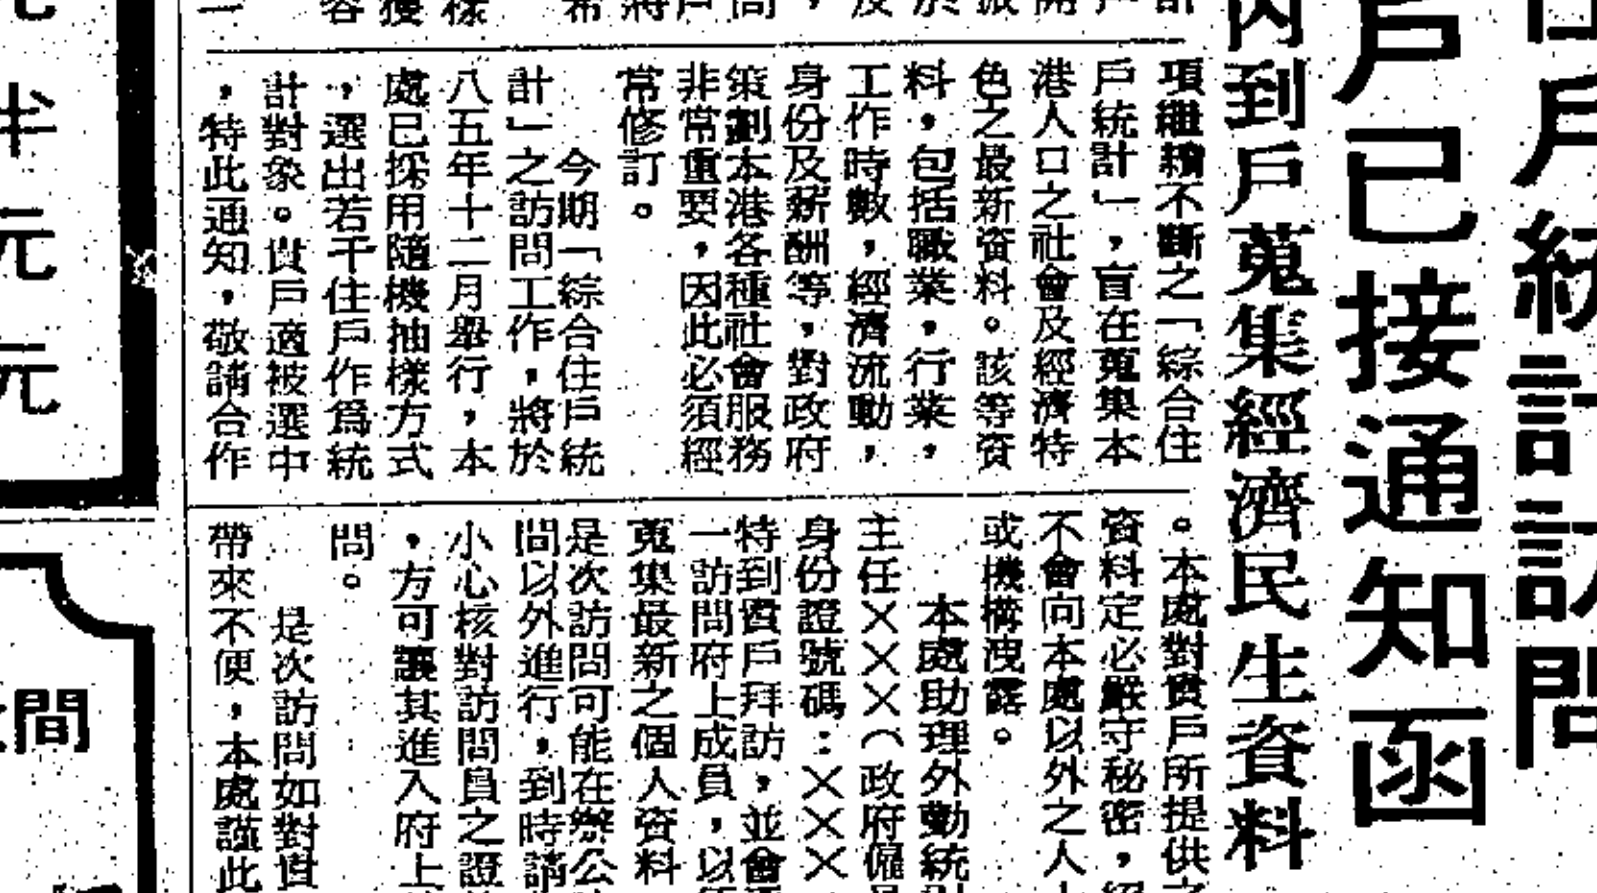 住戶統計訪問
戶已接通知函
內到戶蒐集經濟民生資料
項繼續不斷之「綜合住
戶統計」，旨在蒐集本
港人口之社會及經濟特
色之最新資料。該等資
料，包括職業，行業，
工作時數，經濟流動，
身份及薪酬等，對政府
策劃本港各種社會服務
非常重要，因此必須經
常修訂。
今期「綜合住戶統
計」之訪問工作，將於
八五年十二月舉行，本
處已採用隨機抽樣方式
，選出若干住戶作爲統
計對象。貴戶適被選中
，特此通知，敬請合作
。本處對貴戶所提供之
資料定必嚴守秘密，絕
不會向本處以外之人士
或機構洩露。
本處助理外勤統計
主任×××（政府僱員
身份證號碼：×××
特到貴戶拜訪，並會逐
一訪問府上成員，以
蒐集最新之個人資料
是次訪問可能在辦公
問以外進行，到時請
小心核對訪問員之證
，方可讓其進入府上
問。
是次訪問如對貴
帶來不便，本處謹此
半
元
元
間